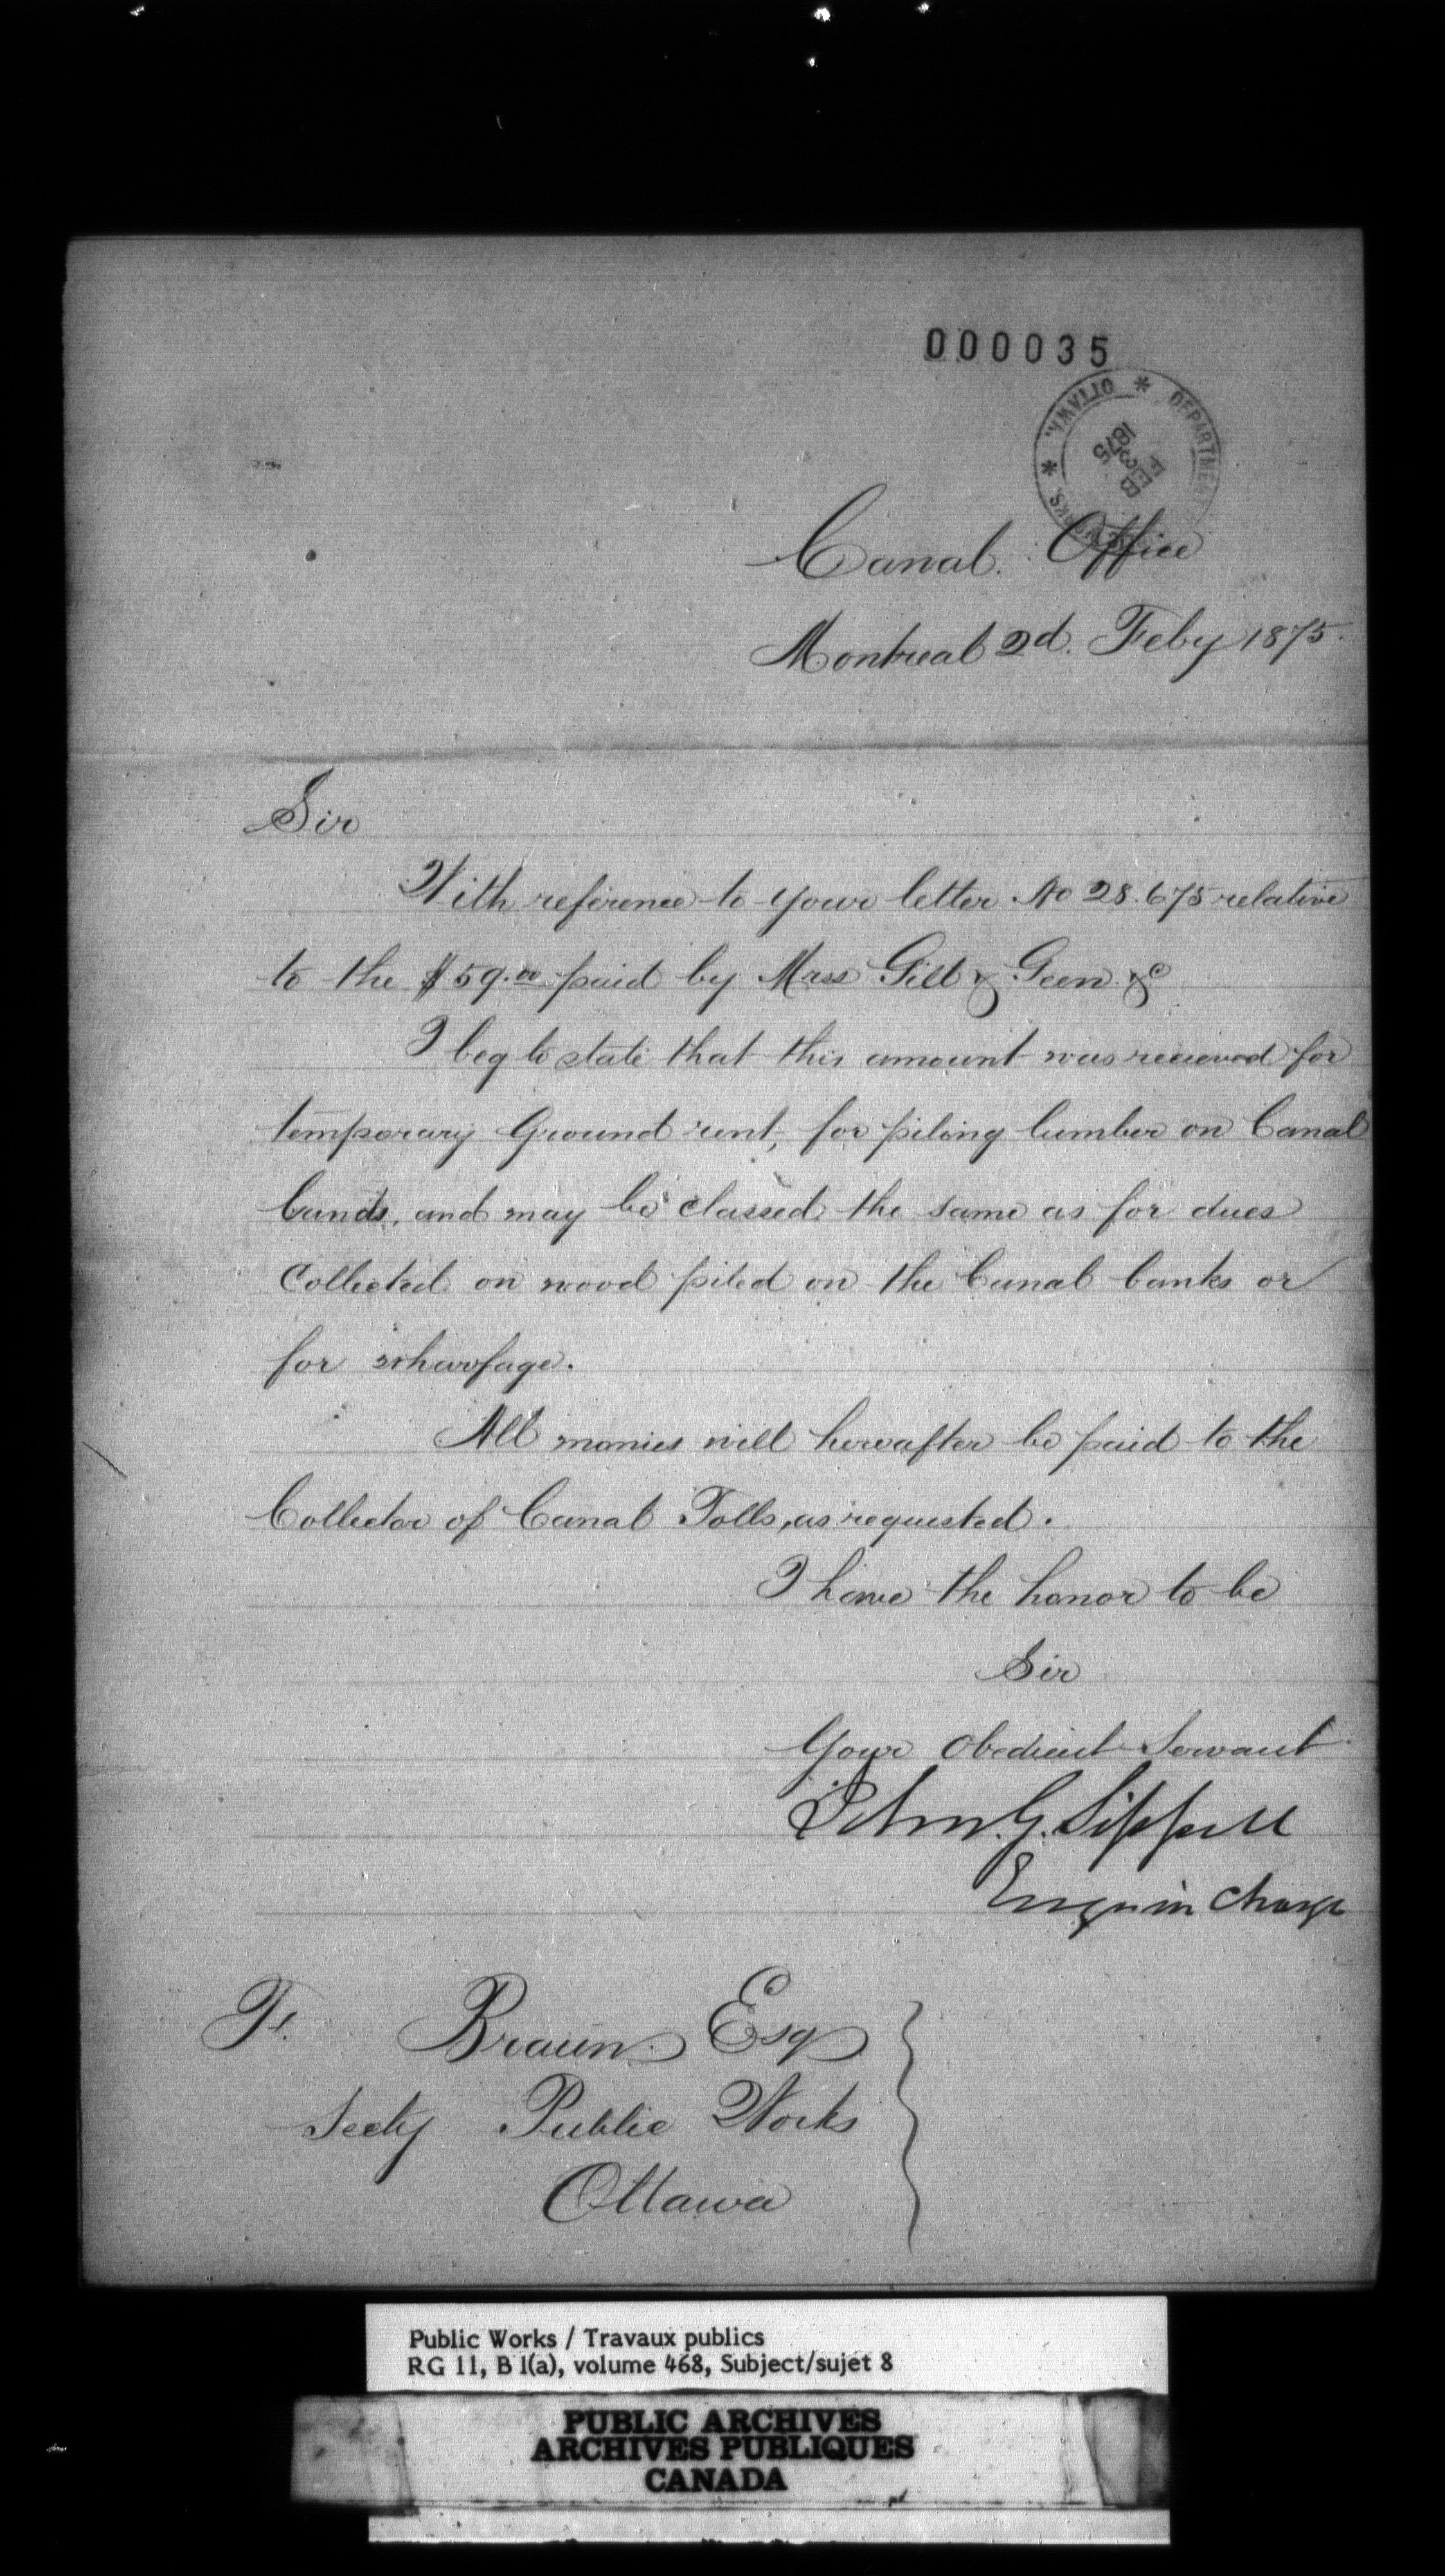 000035
DEPARTMENT OF PUBLIC WORKS * OTTAWA *
FEB
3
1875
Canal Office
Montreal 2d. Feby 1875.
Sir
With reference to your letter No 28.675 relative
to the $59.00 paid by Mrss Gilt & Geen &c
I beg to state that this amount was received for
temporary Ground rent, for piling lumber on Canal
lands, and may be classed the same as for dues
Collected on wood piled on the Canal banks or
for wharfage.
All monies will hereafter be paid to the
Collector of Canal Tolls, as requested.
I have the honor to be
Sir
Your Obedient Servant
John G. Sippell
Engr in Charge
F. Braun Esq
Secty Public Works
Ottawa
Public Works / Travaux publics
RG 11, B 1(a), volume 468, Subject/sujet 8
PUBLIC ARCHIVES
ARCHIVES PUBLIQUES
CANADA